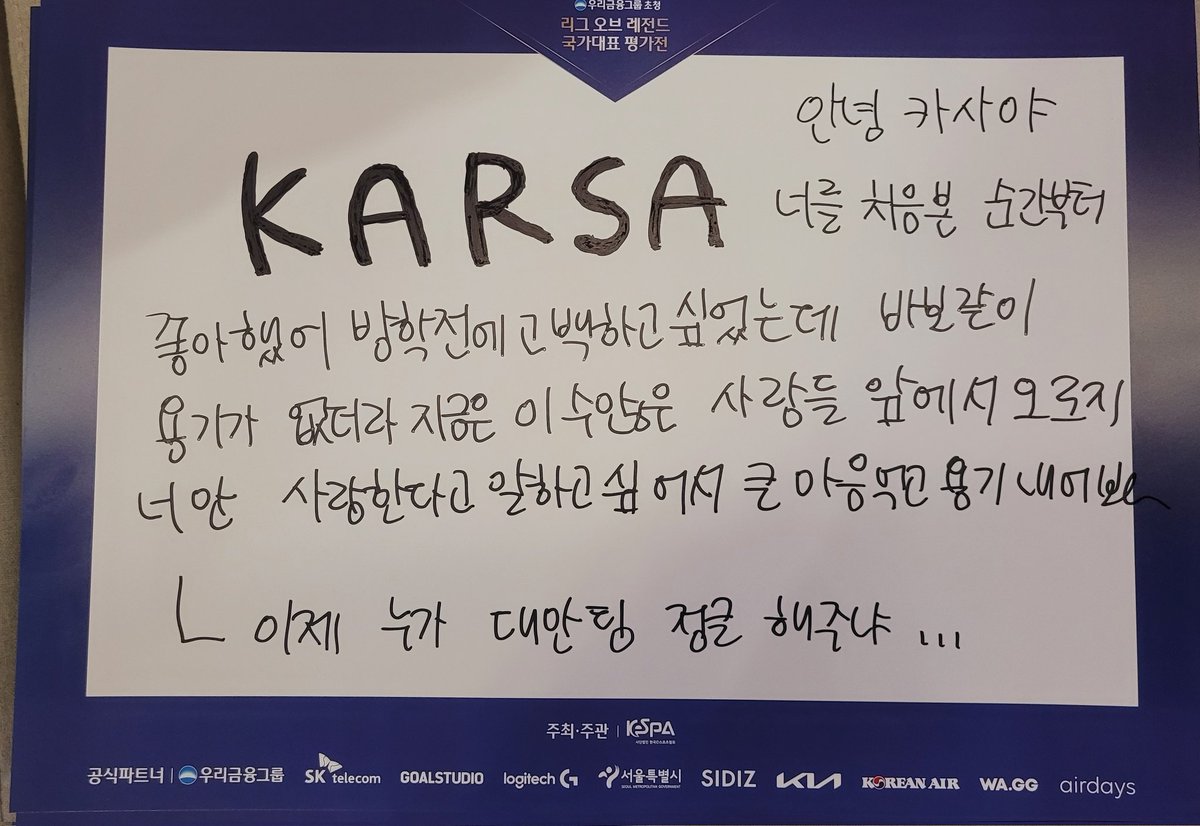 우리금융그룹 초청
리그 오브 레전드
국가대표 평가전
안녕 카사야
KARSA
너를 처음본 순간부터
좋아했어 방학전에 고백하고 싶었는데 바보같이
용기가 없더라 지금은 이 수많은 사람들 앞에서 오로지
너만 사랑한다고 말하고 싶어서 큰 마음먹고 용기 내어봐
ㄴ 이제 누가 대만팀 정글 해주냐 ...
주최·주관 | KeSPA
사단법인 한국e스포츠협회
공식파트너 | 우리금융그룹 SK telecom GOALSTUDIO logitech G 서울특별시 SIDIZ KIA KOREAN AIR WA.GG airdays
SEOUL METROPOLITAN GOVERNMENT